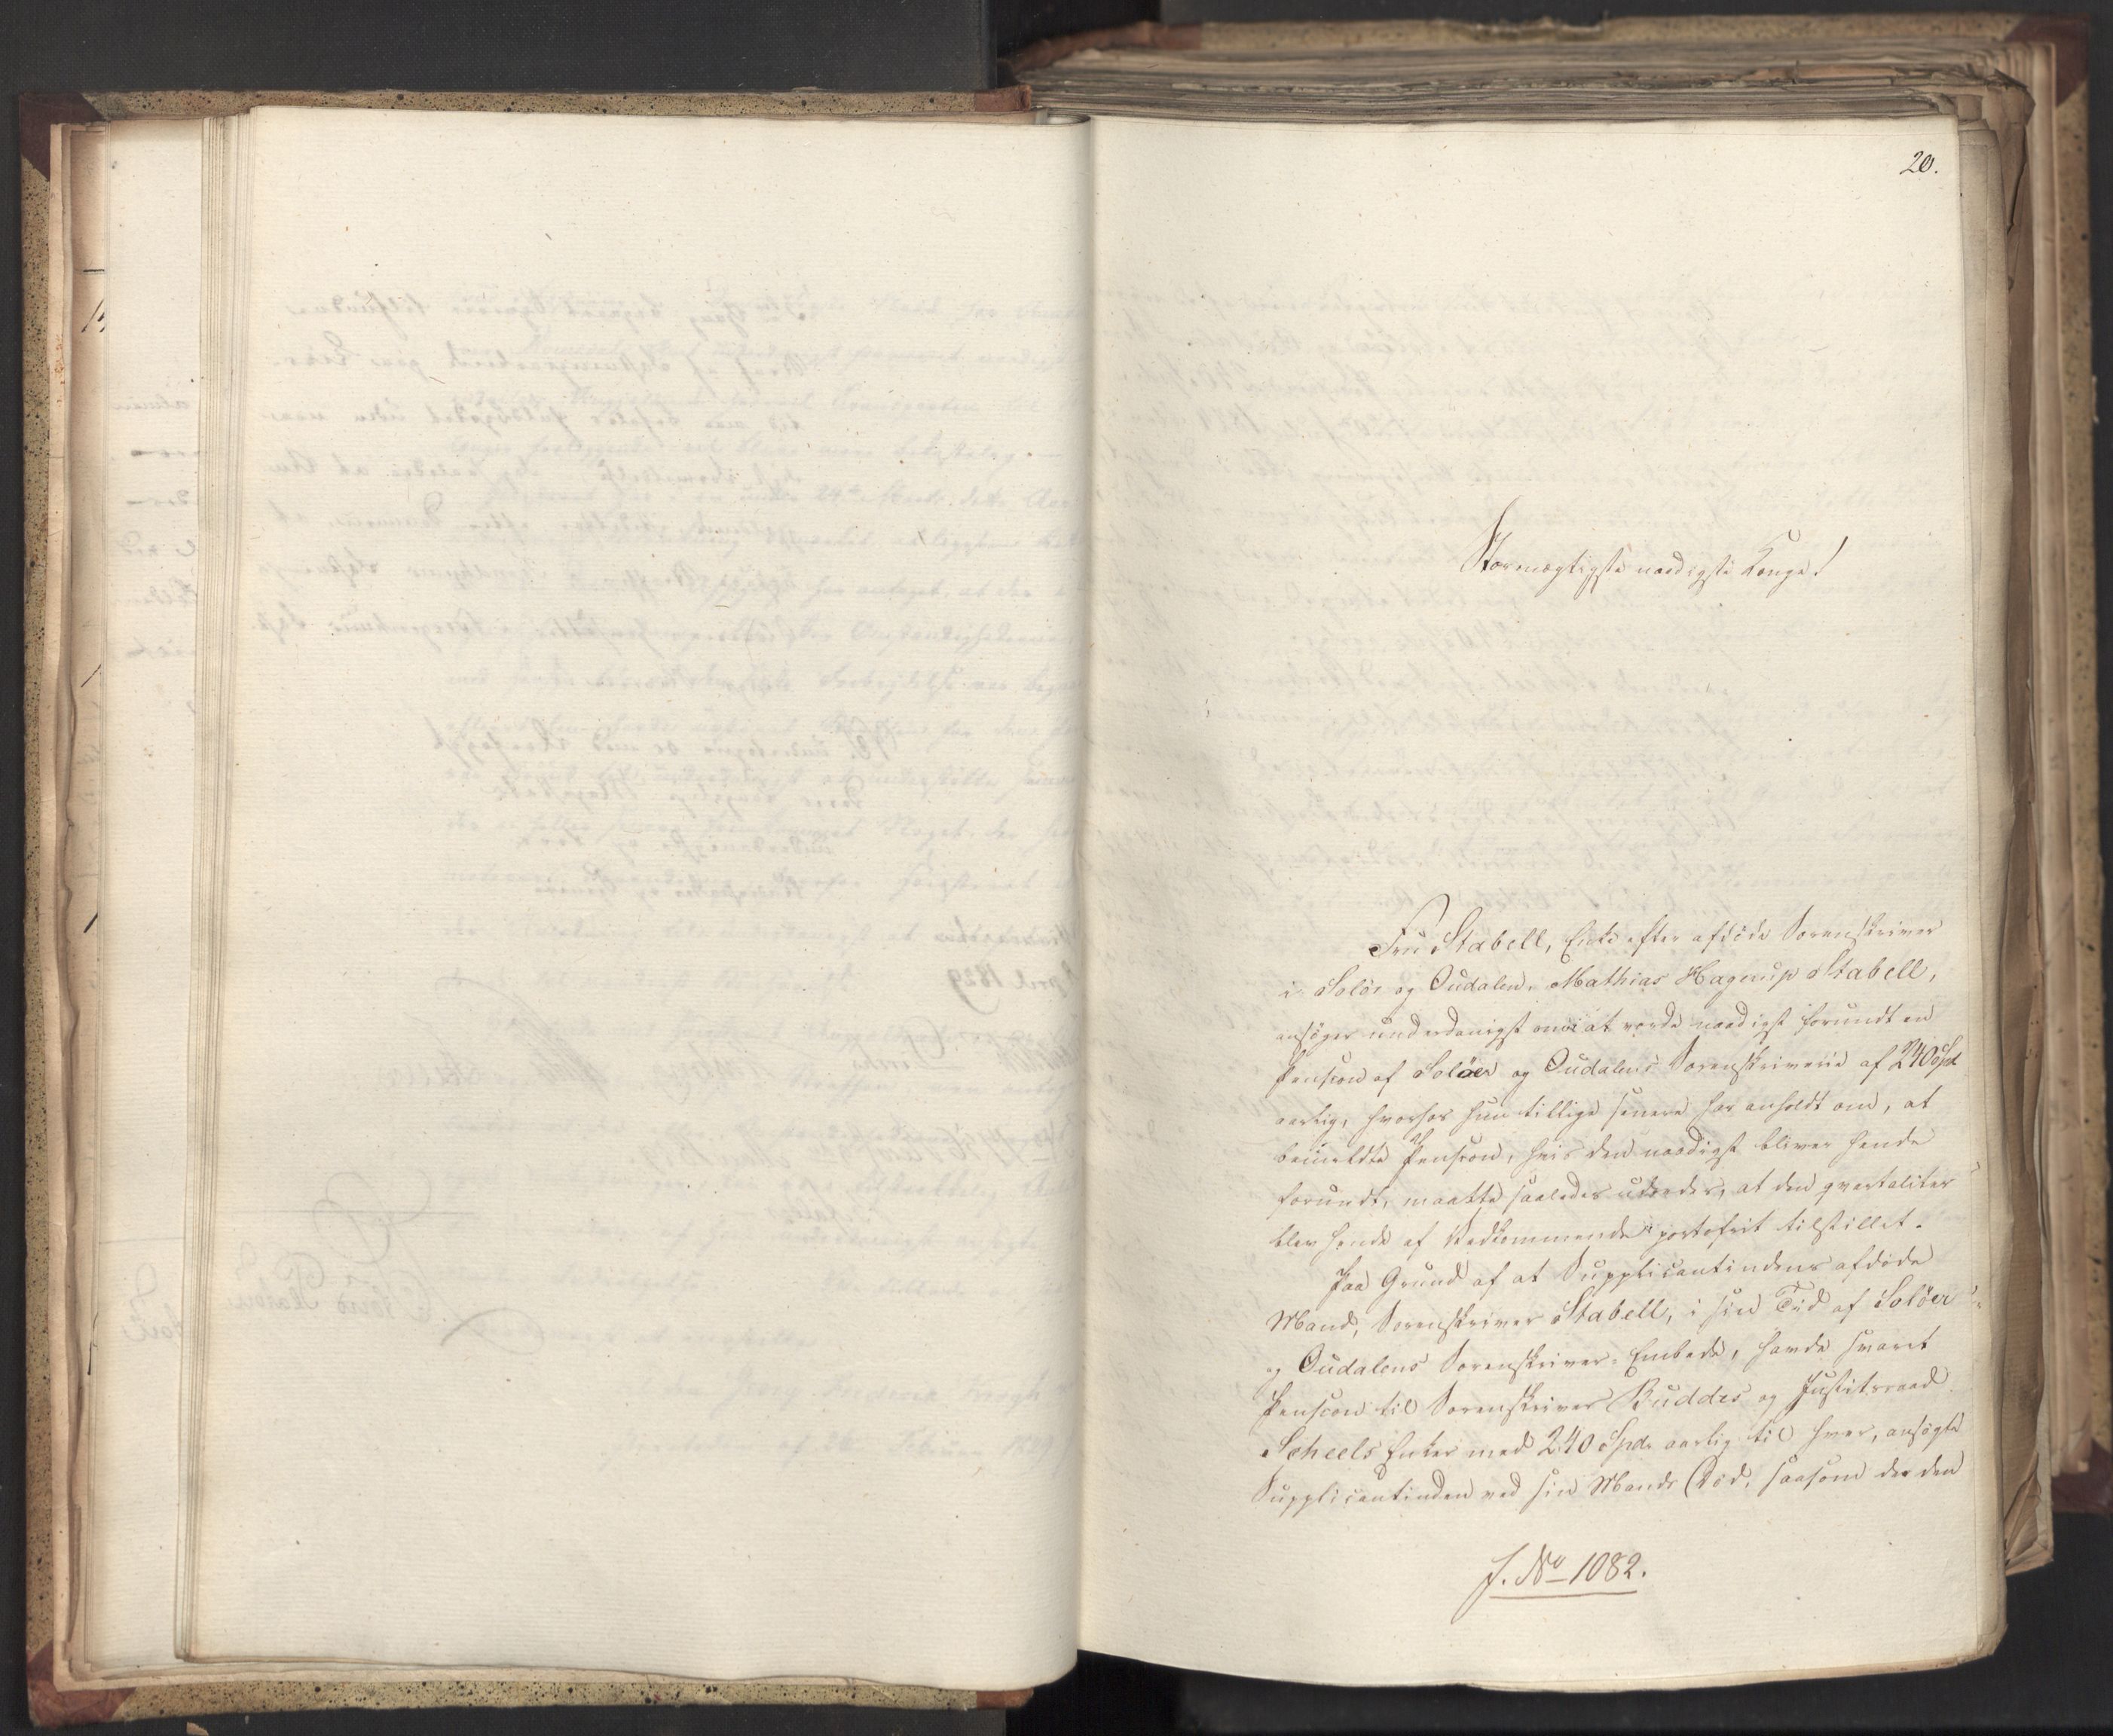 20.
Stormægtigste naadigste Konge!
Fru Stabell, Enke efter afdöde Sorenskriver
i Solör og Oudalen, Mathias Hagerup Stabell,
ansöger underdanigst om at vorde naadigst forundt en
Pension af Solöer og Oudalens Sorenskriverie af 240 Spd
aarlig, hvorhos hun tillige senere har anholdt om, at
bemeldte Pension, hvis den naadigst bliver hende
forundt, maatte saaledes udredes, at den qvartaliter
blev hende af Vedkommende portofrit tilstillet.
Paa Grund af at Supplicantindens afdöde
Mand, Sorenskriver Stabell, i sin Tid af Solöer
og Oudalens Sorenskriver-Embede, havde svaret
Pension til Sorenskriver Buddes og Justitsraad
Scheels Enker med 240 Spdr aarlig til hver, ansögte
Supplicantinden ved sin Mands Död, saasom der den
J. No 1082.